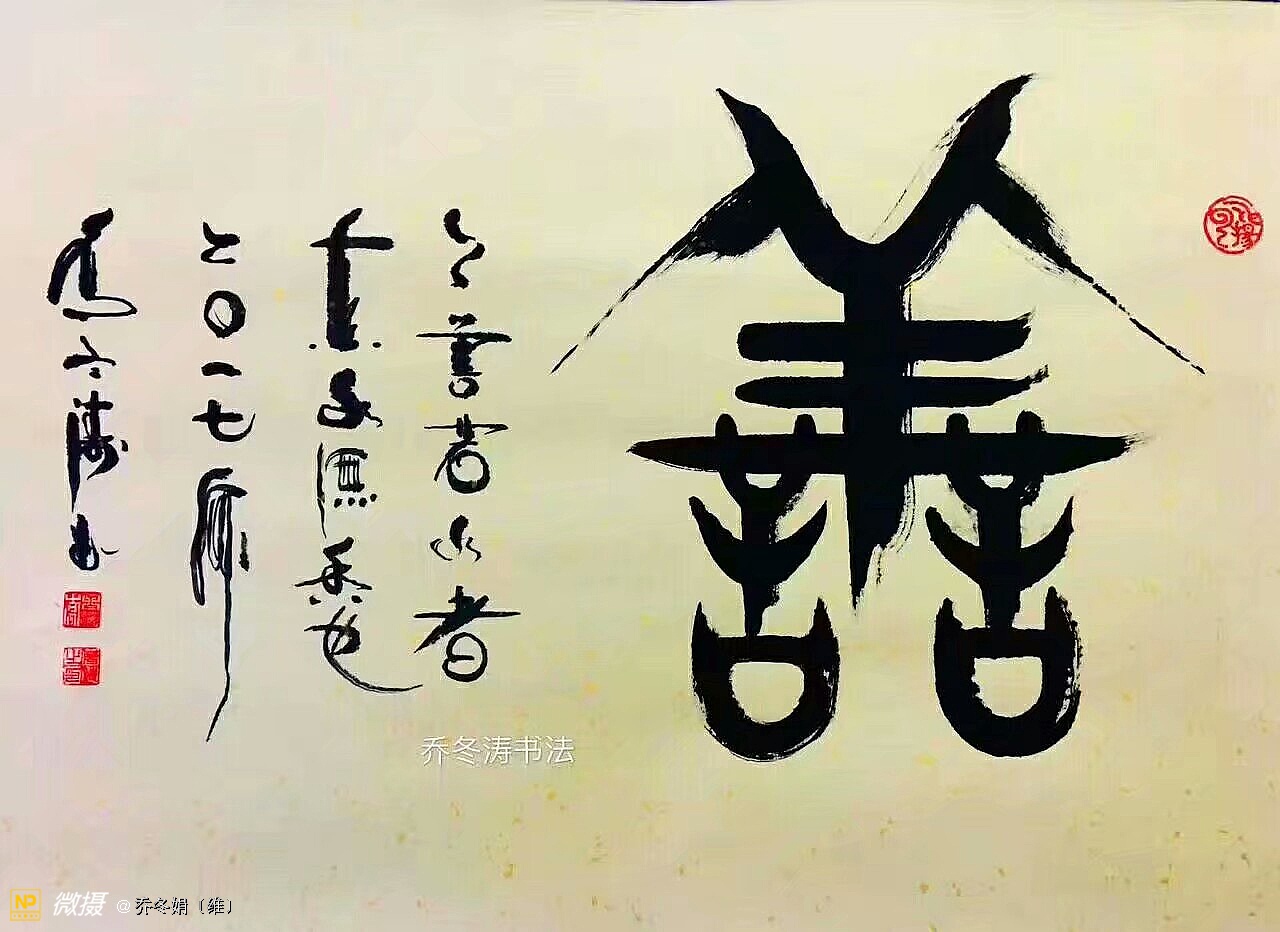 善
上善若水者
真水無香也
二〇一七年
乔冬涛书
乔冬涛书法
NP 微摄 @乔冬娟（维）